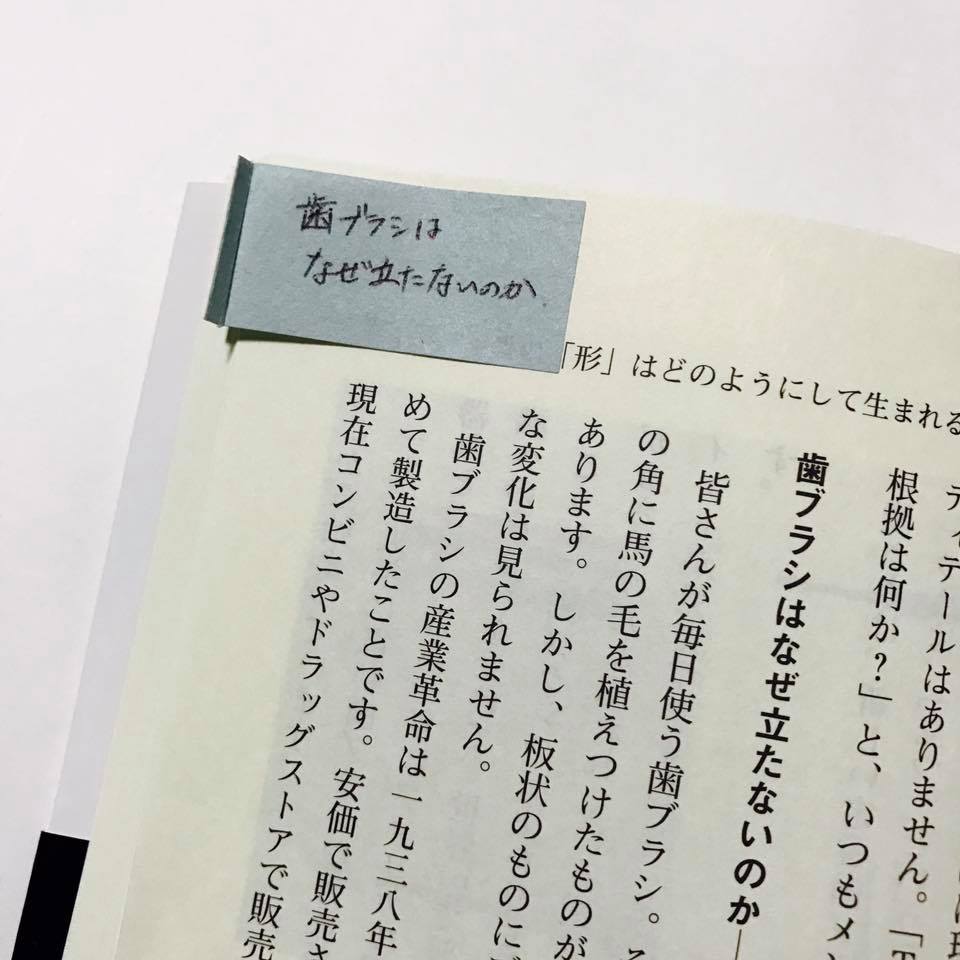 歯ブラシは
なぜ立たないのか
「形」はどのようにして生まれる
ディテールはありません。「T
根拠は何か？」と、いつもメン
歯ブラシはなぜ立たないのか
皆さんが毎日使う歯ブラシ。そ
の角に馬の毛を植えつけたものが
あります。しかし、板状のものにブ
な変化は見られません。
歯ブラシの産業革命は一九三八年
めて製造したことです。安価で販売さ
現在コンビニやドラッグストアで販売